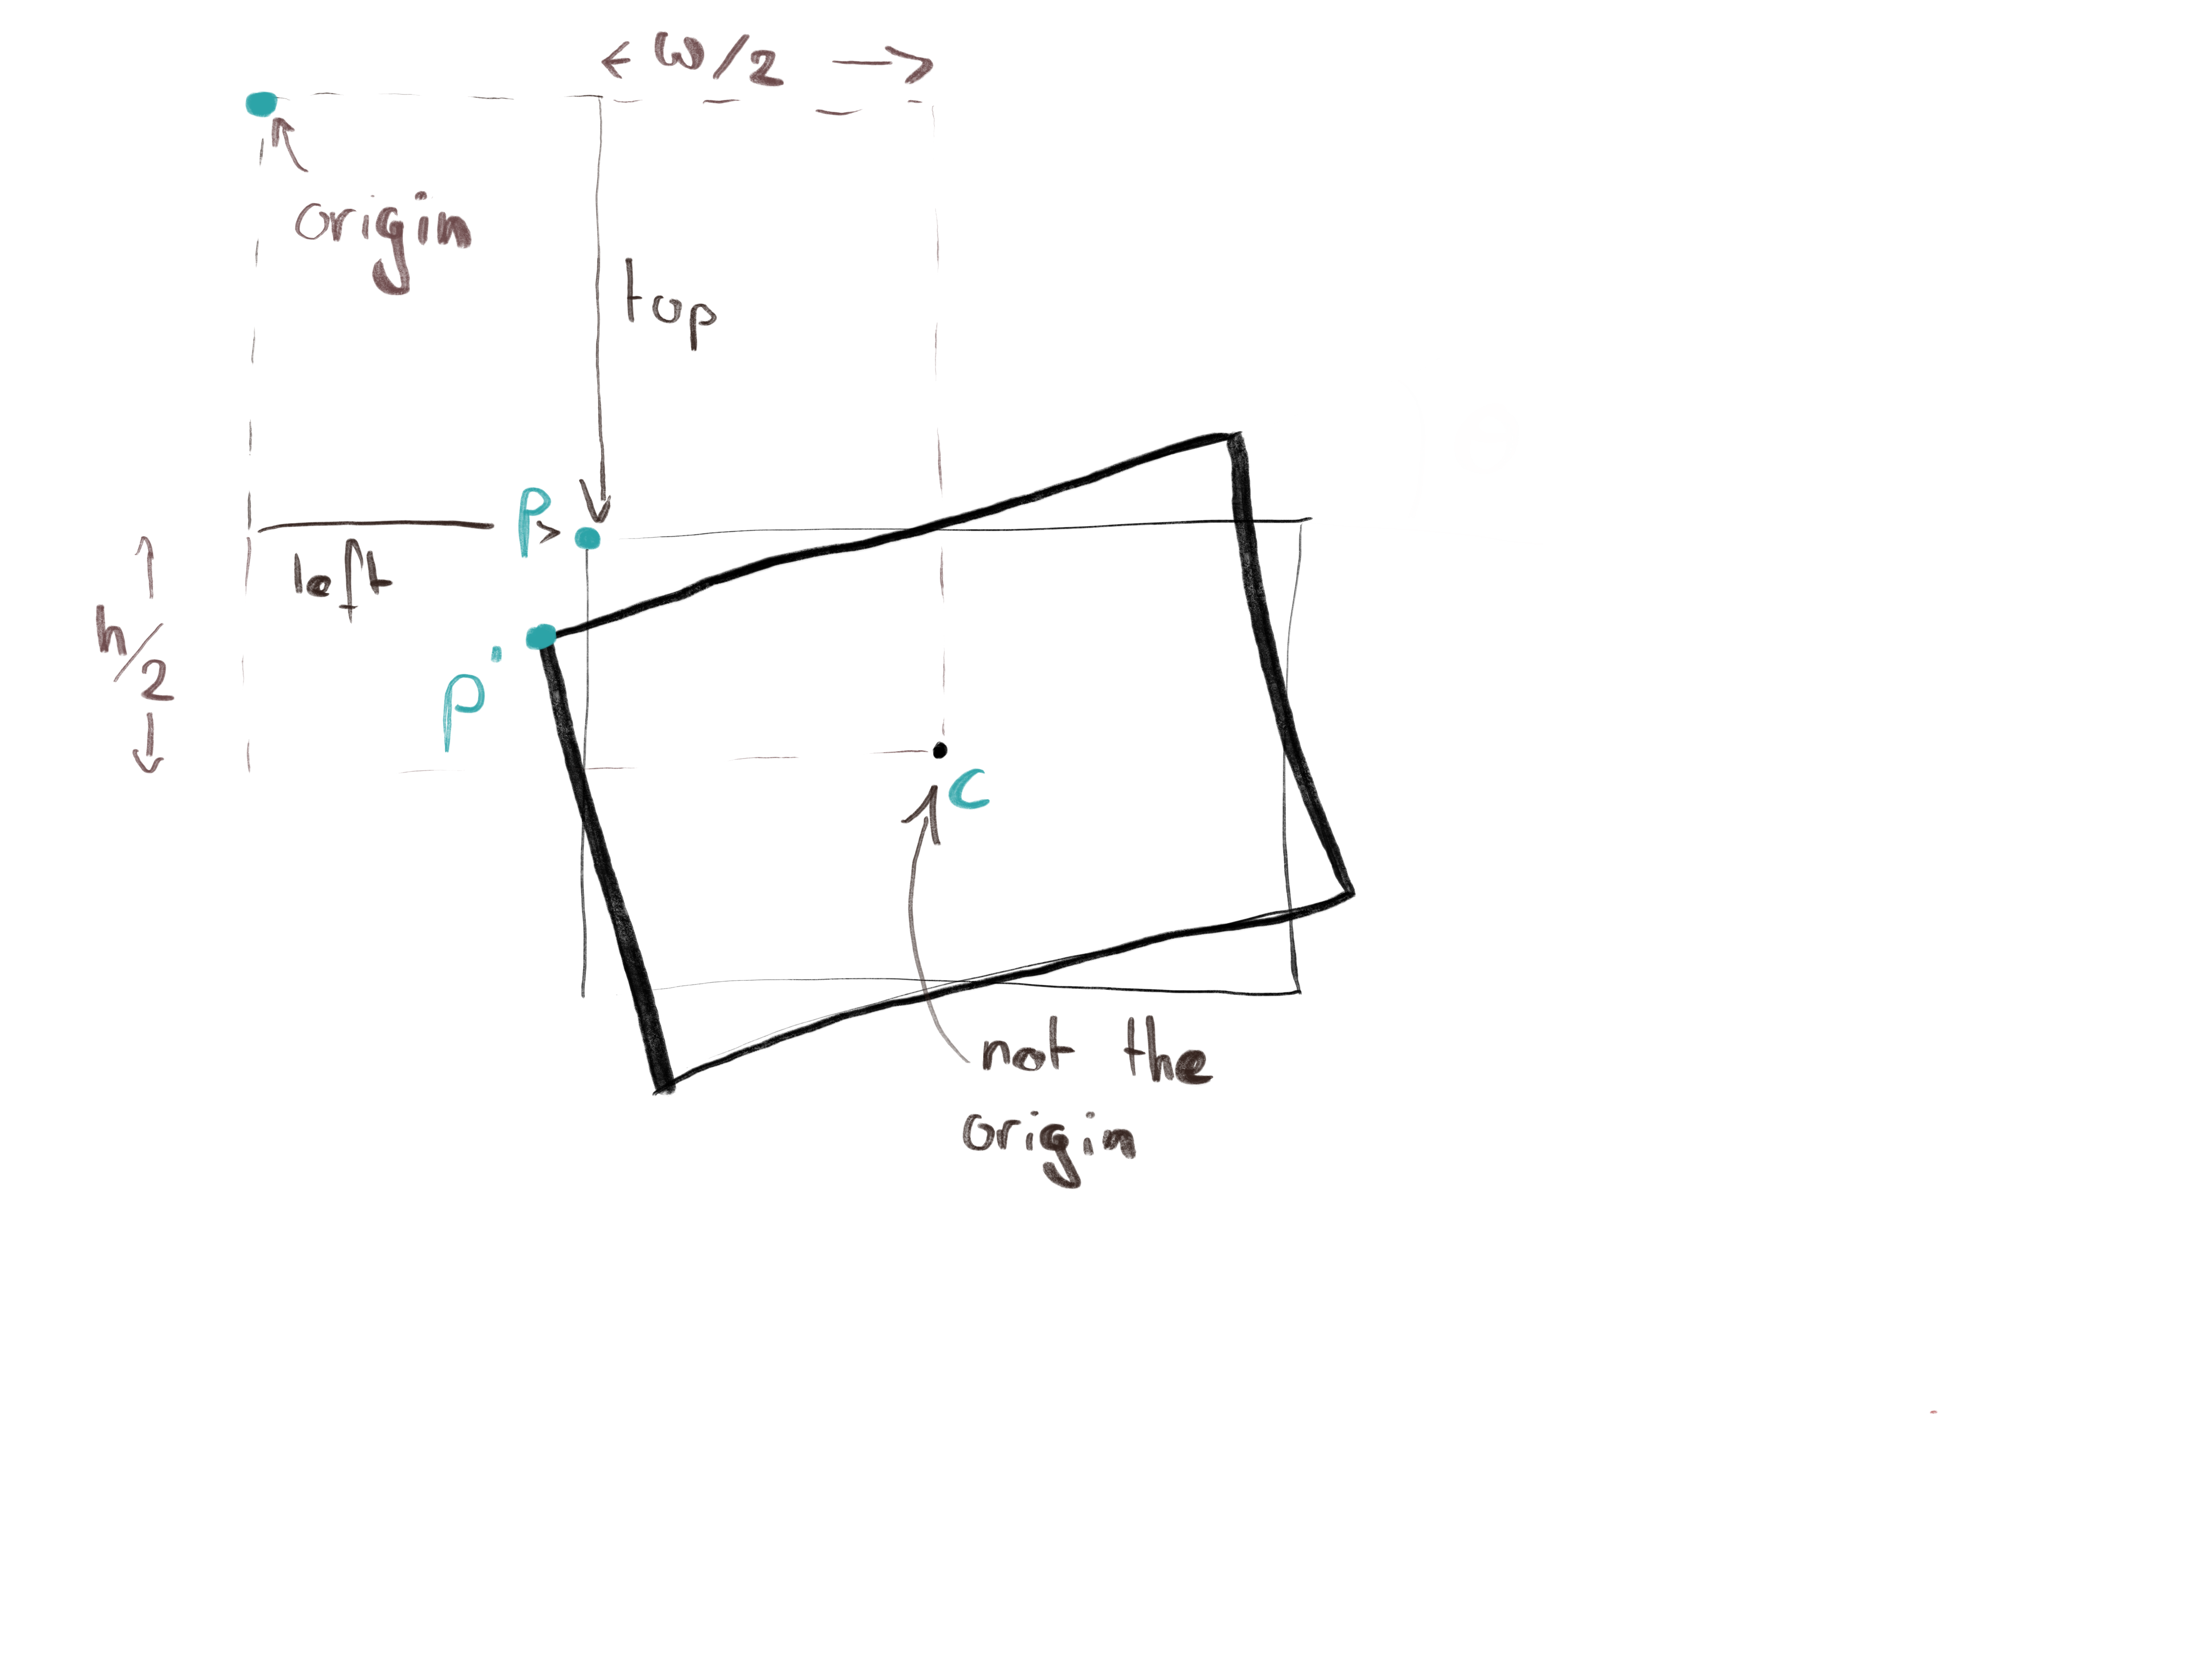 ← w/2 →
origin
top
P >
left
h/2
p'
C
not the
origin